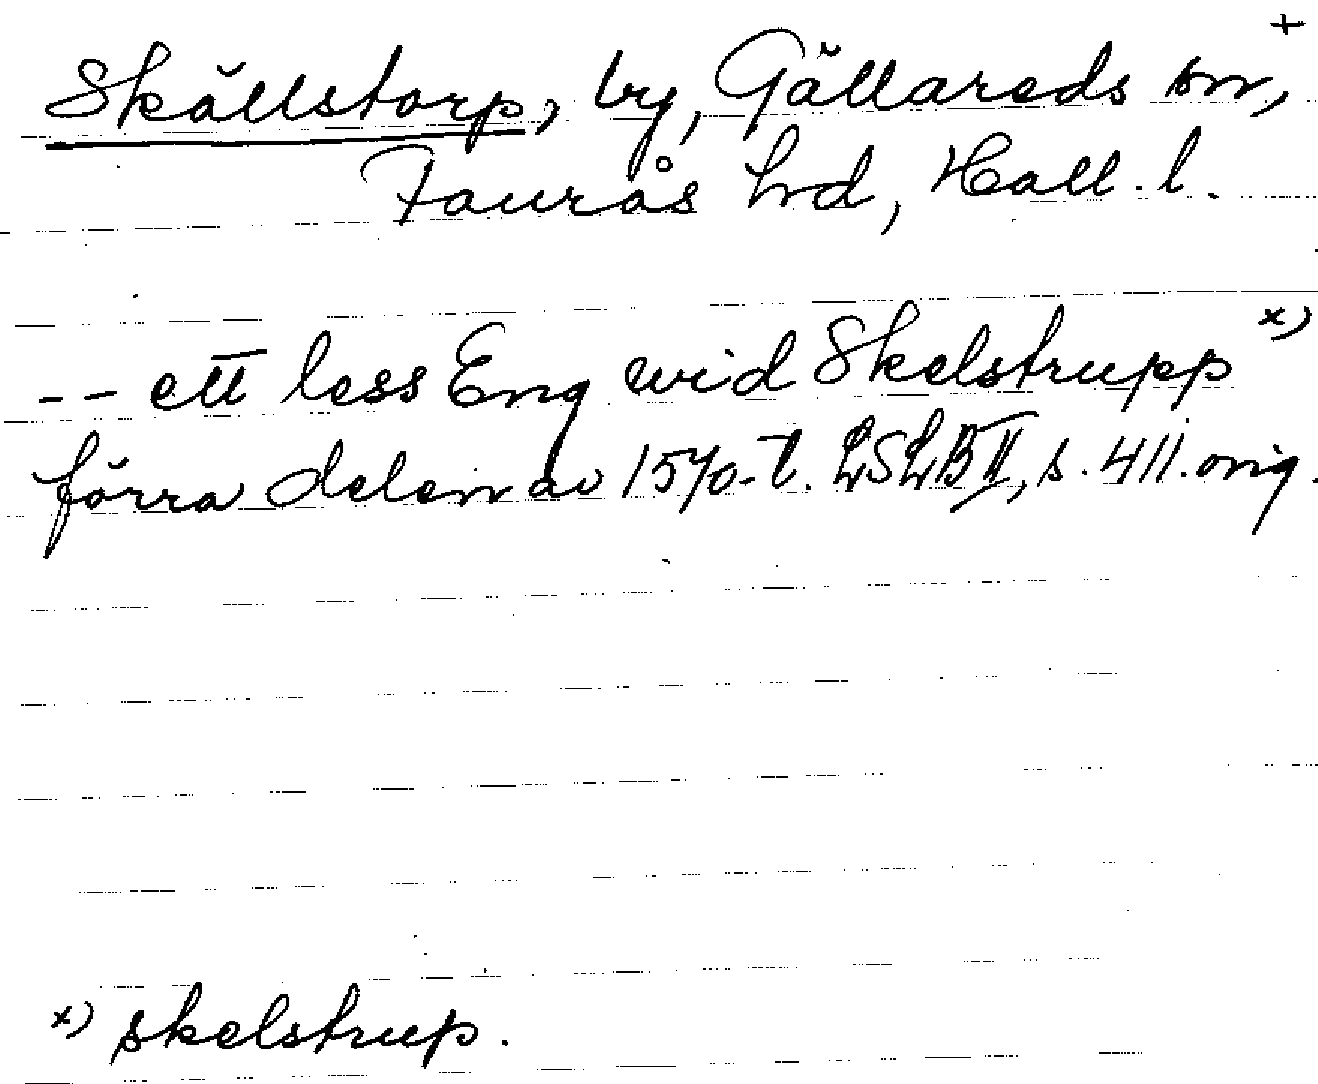 +
Skällstorp, by, Gällareds sn,
Faurås hrd, Hall. l.
-- ett less Eng wid Skelstrupp x)
förra delen av 1570-t. LSLB II, s. 411. orig.
x) skelstrup.